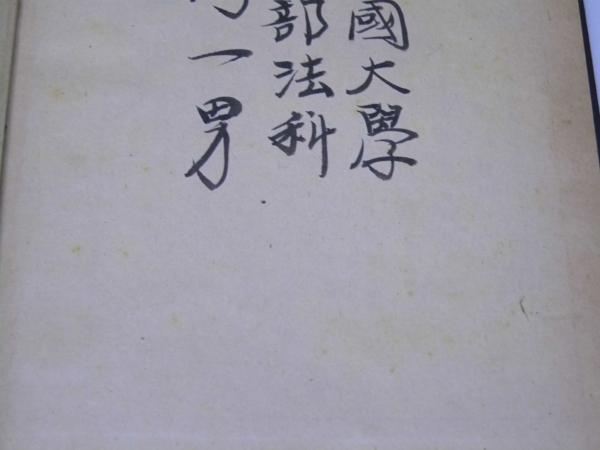 國大學
部法科
一男